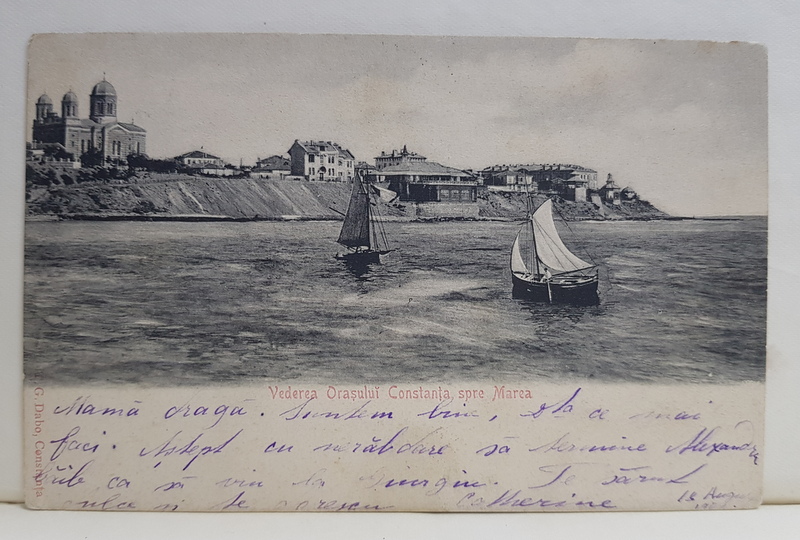 Vederea Oraşuluĭ Constanţa, spre Marea
G. Dabo, Constanţa
Mamă dragă. Suntem bine, Dta ce mai
faci. Aştept cu nerăbdare să termine Alexandra
băile ca să vin la Giurgiu. Te sărut
şi te Catherine 12 August